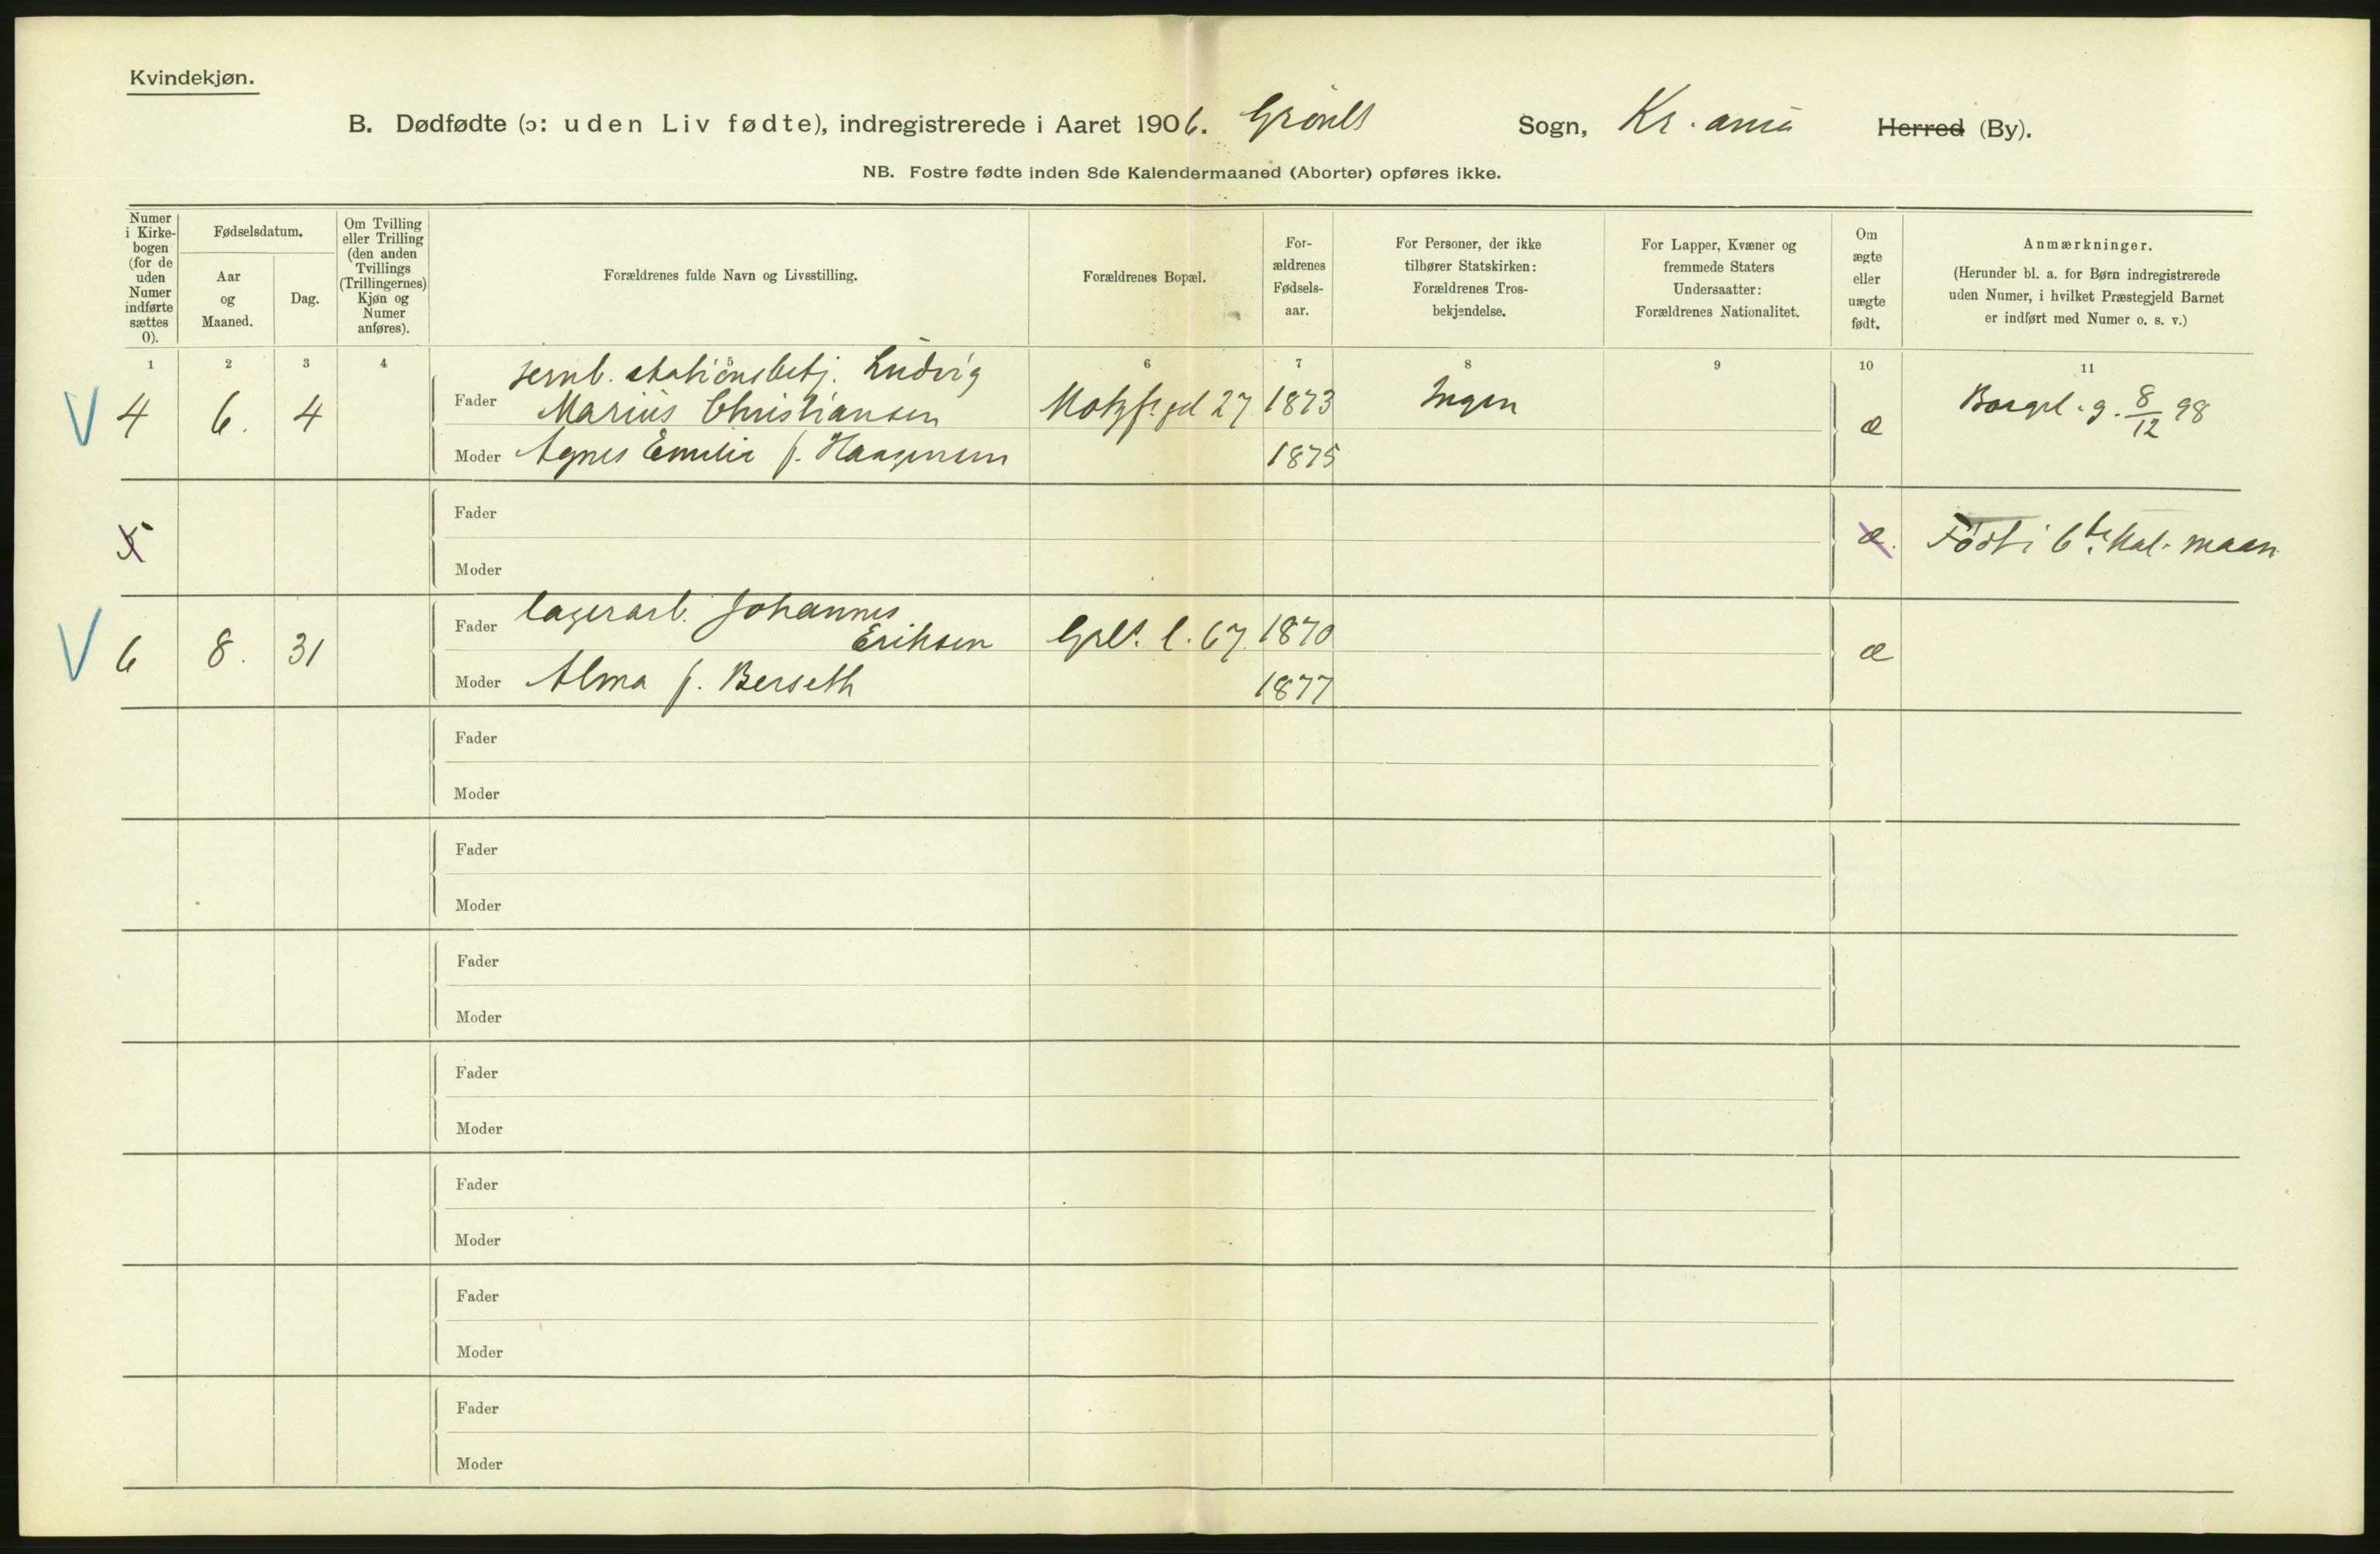 Kvindekjøn.
B. Dødfødte (ɔ: uden Liv fødte), indregistrerede i Aaret 1906. Grønl. Sogn, Kr.ania Herred (By).
NB. Fostre fødte inden 8de Kalendermaaned (Aborter) opføres ikke.
Numer i Kirke-bogen (for de uden Numer indførte sættes 0).
Fødselsdatum.
Aar og Maaned.
Dag.
Om Tvilling eller Trilling (den anden Tvillings (Trillingernes) Kjøn og Numer anføres).
Forældrenes fulde Navn og Livsstilling.
Forældrenes Bopæl.
For-ældrenes Fødsels-aar.
For Personer, der ikke tilhører Statskirken: Forældrenes Tros-bekjendelse.
For Lapper, Kvæner og fremmede Staters Undersaatter: Forældrenes Nationalitet.
Om ægte eller uægte født.
Anmærkninger.
(Herunder bl. a. for Børn indregistrerede uden Numer, i hvilket Præstegjeld Barnet er indført med Numer o. s. v.)
1 2 3 4 5 6 7 8 9 10 11
jernb. stationsbetj. Ludvig
V 4 6. 4 Fader Marius Christiansen Motzf.gd 27 1873 Ingen æ Borgl. g. 8/12 98
Moder Agnes Emilie f. Haagensen 1875
Fader
5 æ. Født i 6te Kal. maan
Moder
lagerarb. Johannes
V 6 8. 31 Fader Eriksen Grl. l. 67 1870 æ
Moder Alma f. Berseth 1877
Fader
Moder
Fader
Moder
Fader
Moder
Fader
Moder
Fader
Moder
Fader
Moder
Fader
Moder